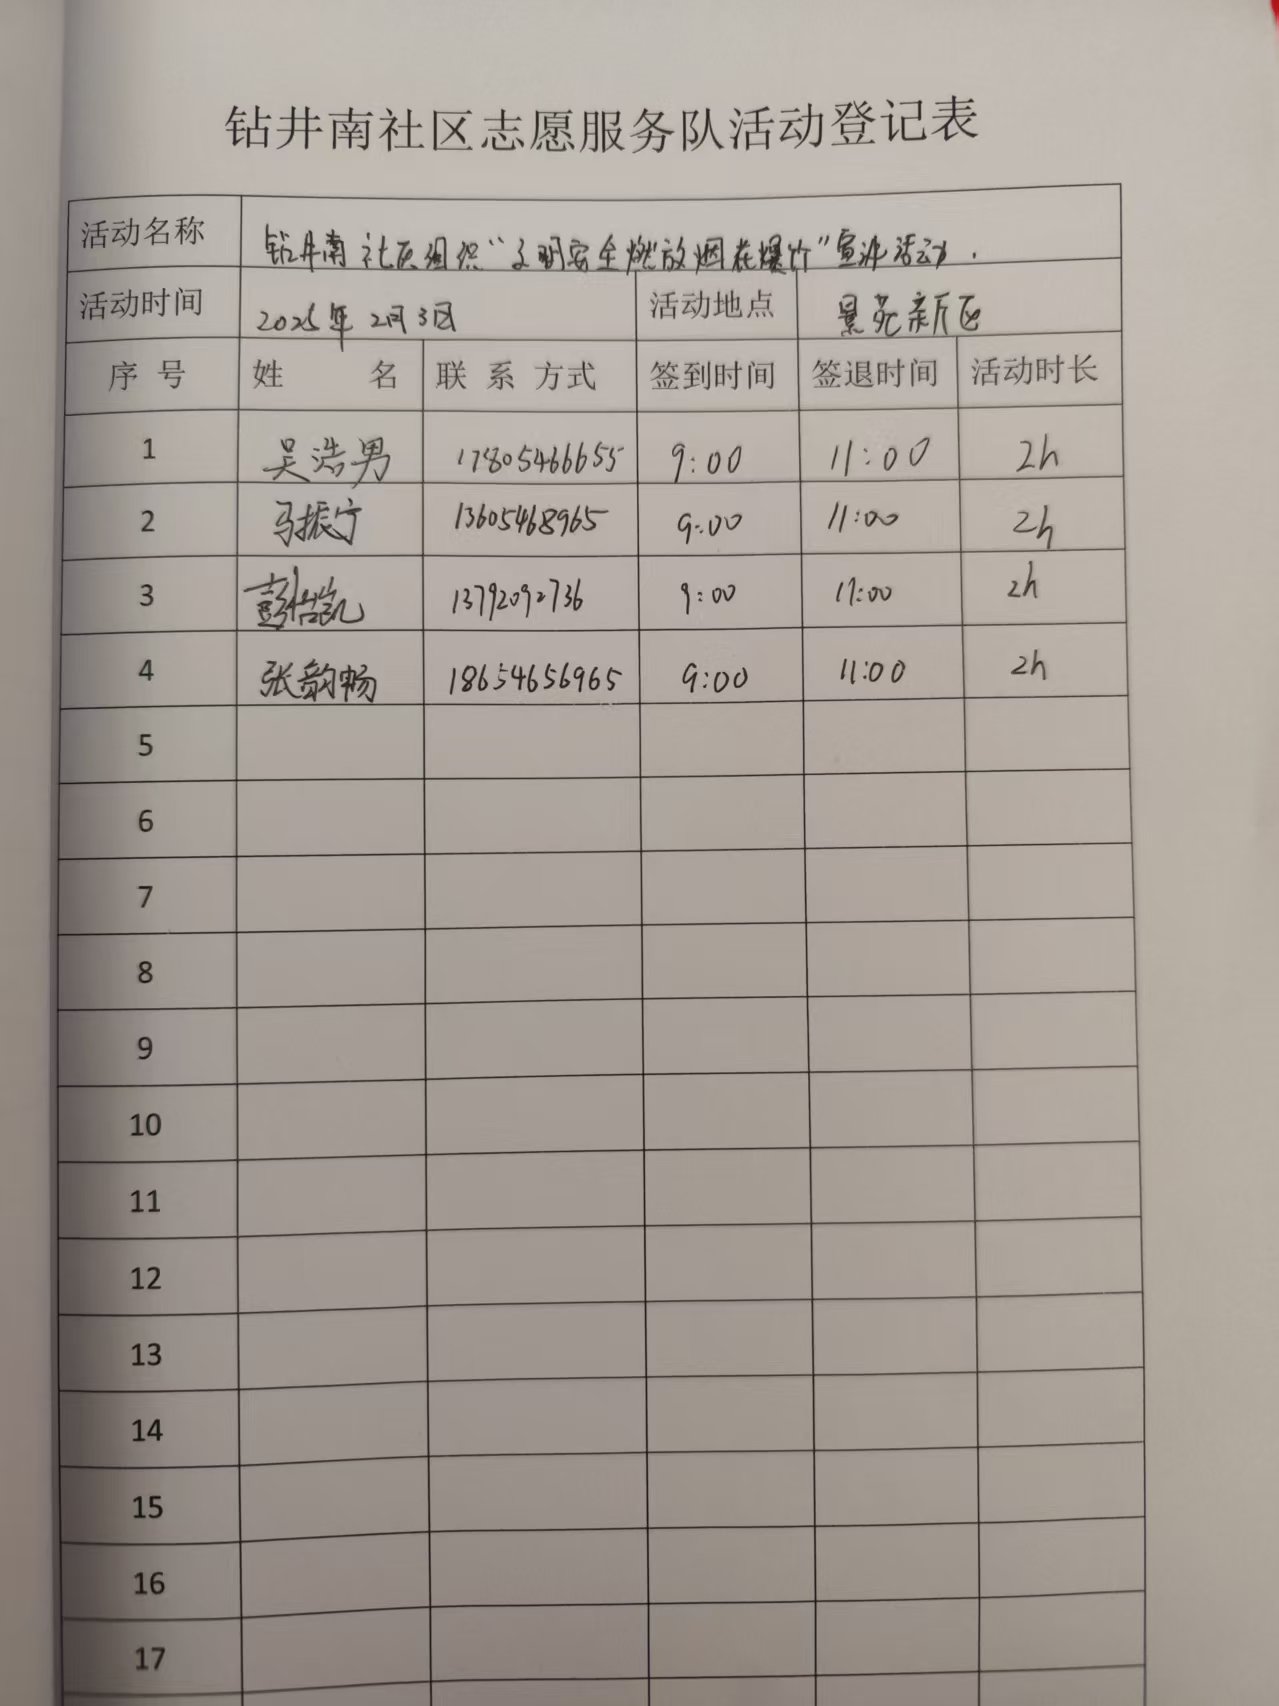 钻井南社区志愿服务队活动登记表
活动名称 钻井南社区组织“文明安全燃放烟花爆竹”宣讲活动.
活动时间 2025年2月3日 活动地点 景苑新区
序号 姓名 联系方式 签到时间 签退时间 活动时长
1 吴浩男 17805466655 9:00 11:00 2h
2 马振宁 13605468965 9:00 11:00 2h
3 彭 凯 13792092736 9:00 11:00 2h
4 张韵畅 18654656965 9:00 11:00 2h
5
6
7
8
9
10
11
12
13
14
15
16
17